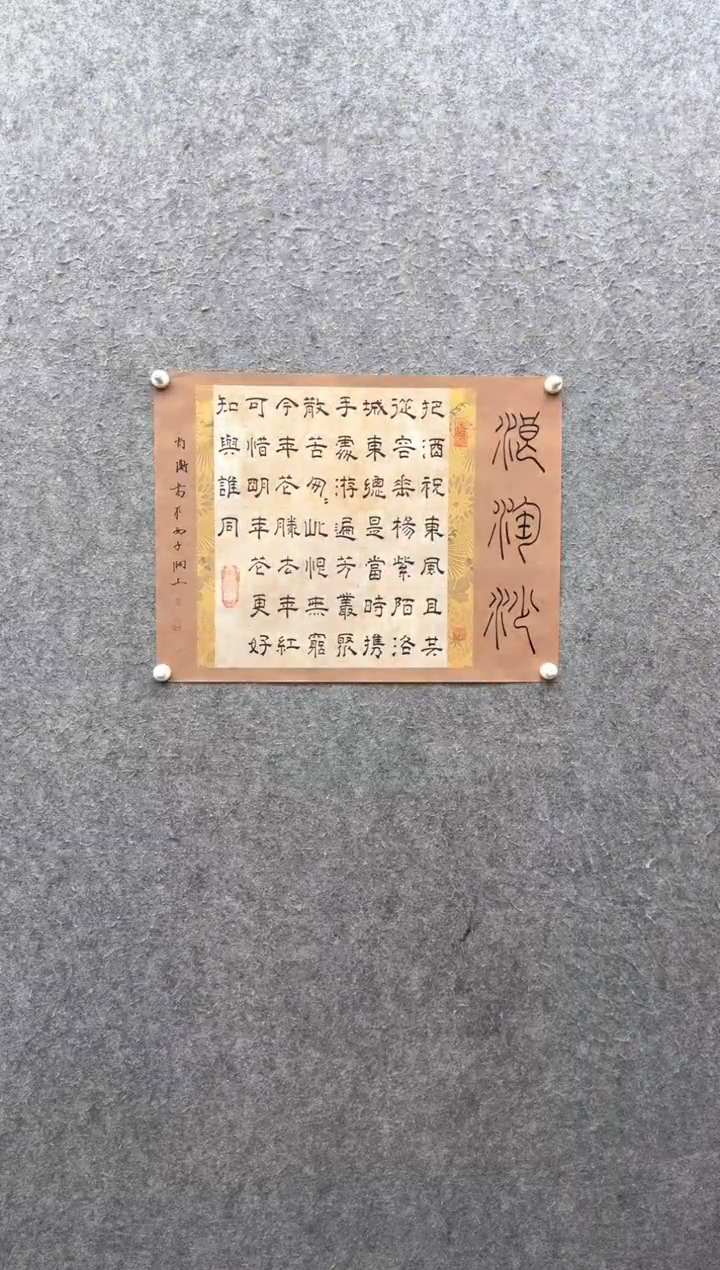 浪淘沙
把酒祝東風且共
從容垂楊紫陌洛
城東總是當時攜
手處游遍芳叢聚
散苦匆〻此恨無窮
今年花勝去年紅
可惜明年花更好
知與誰同
書於西子湖上